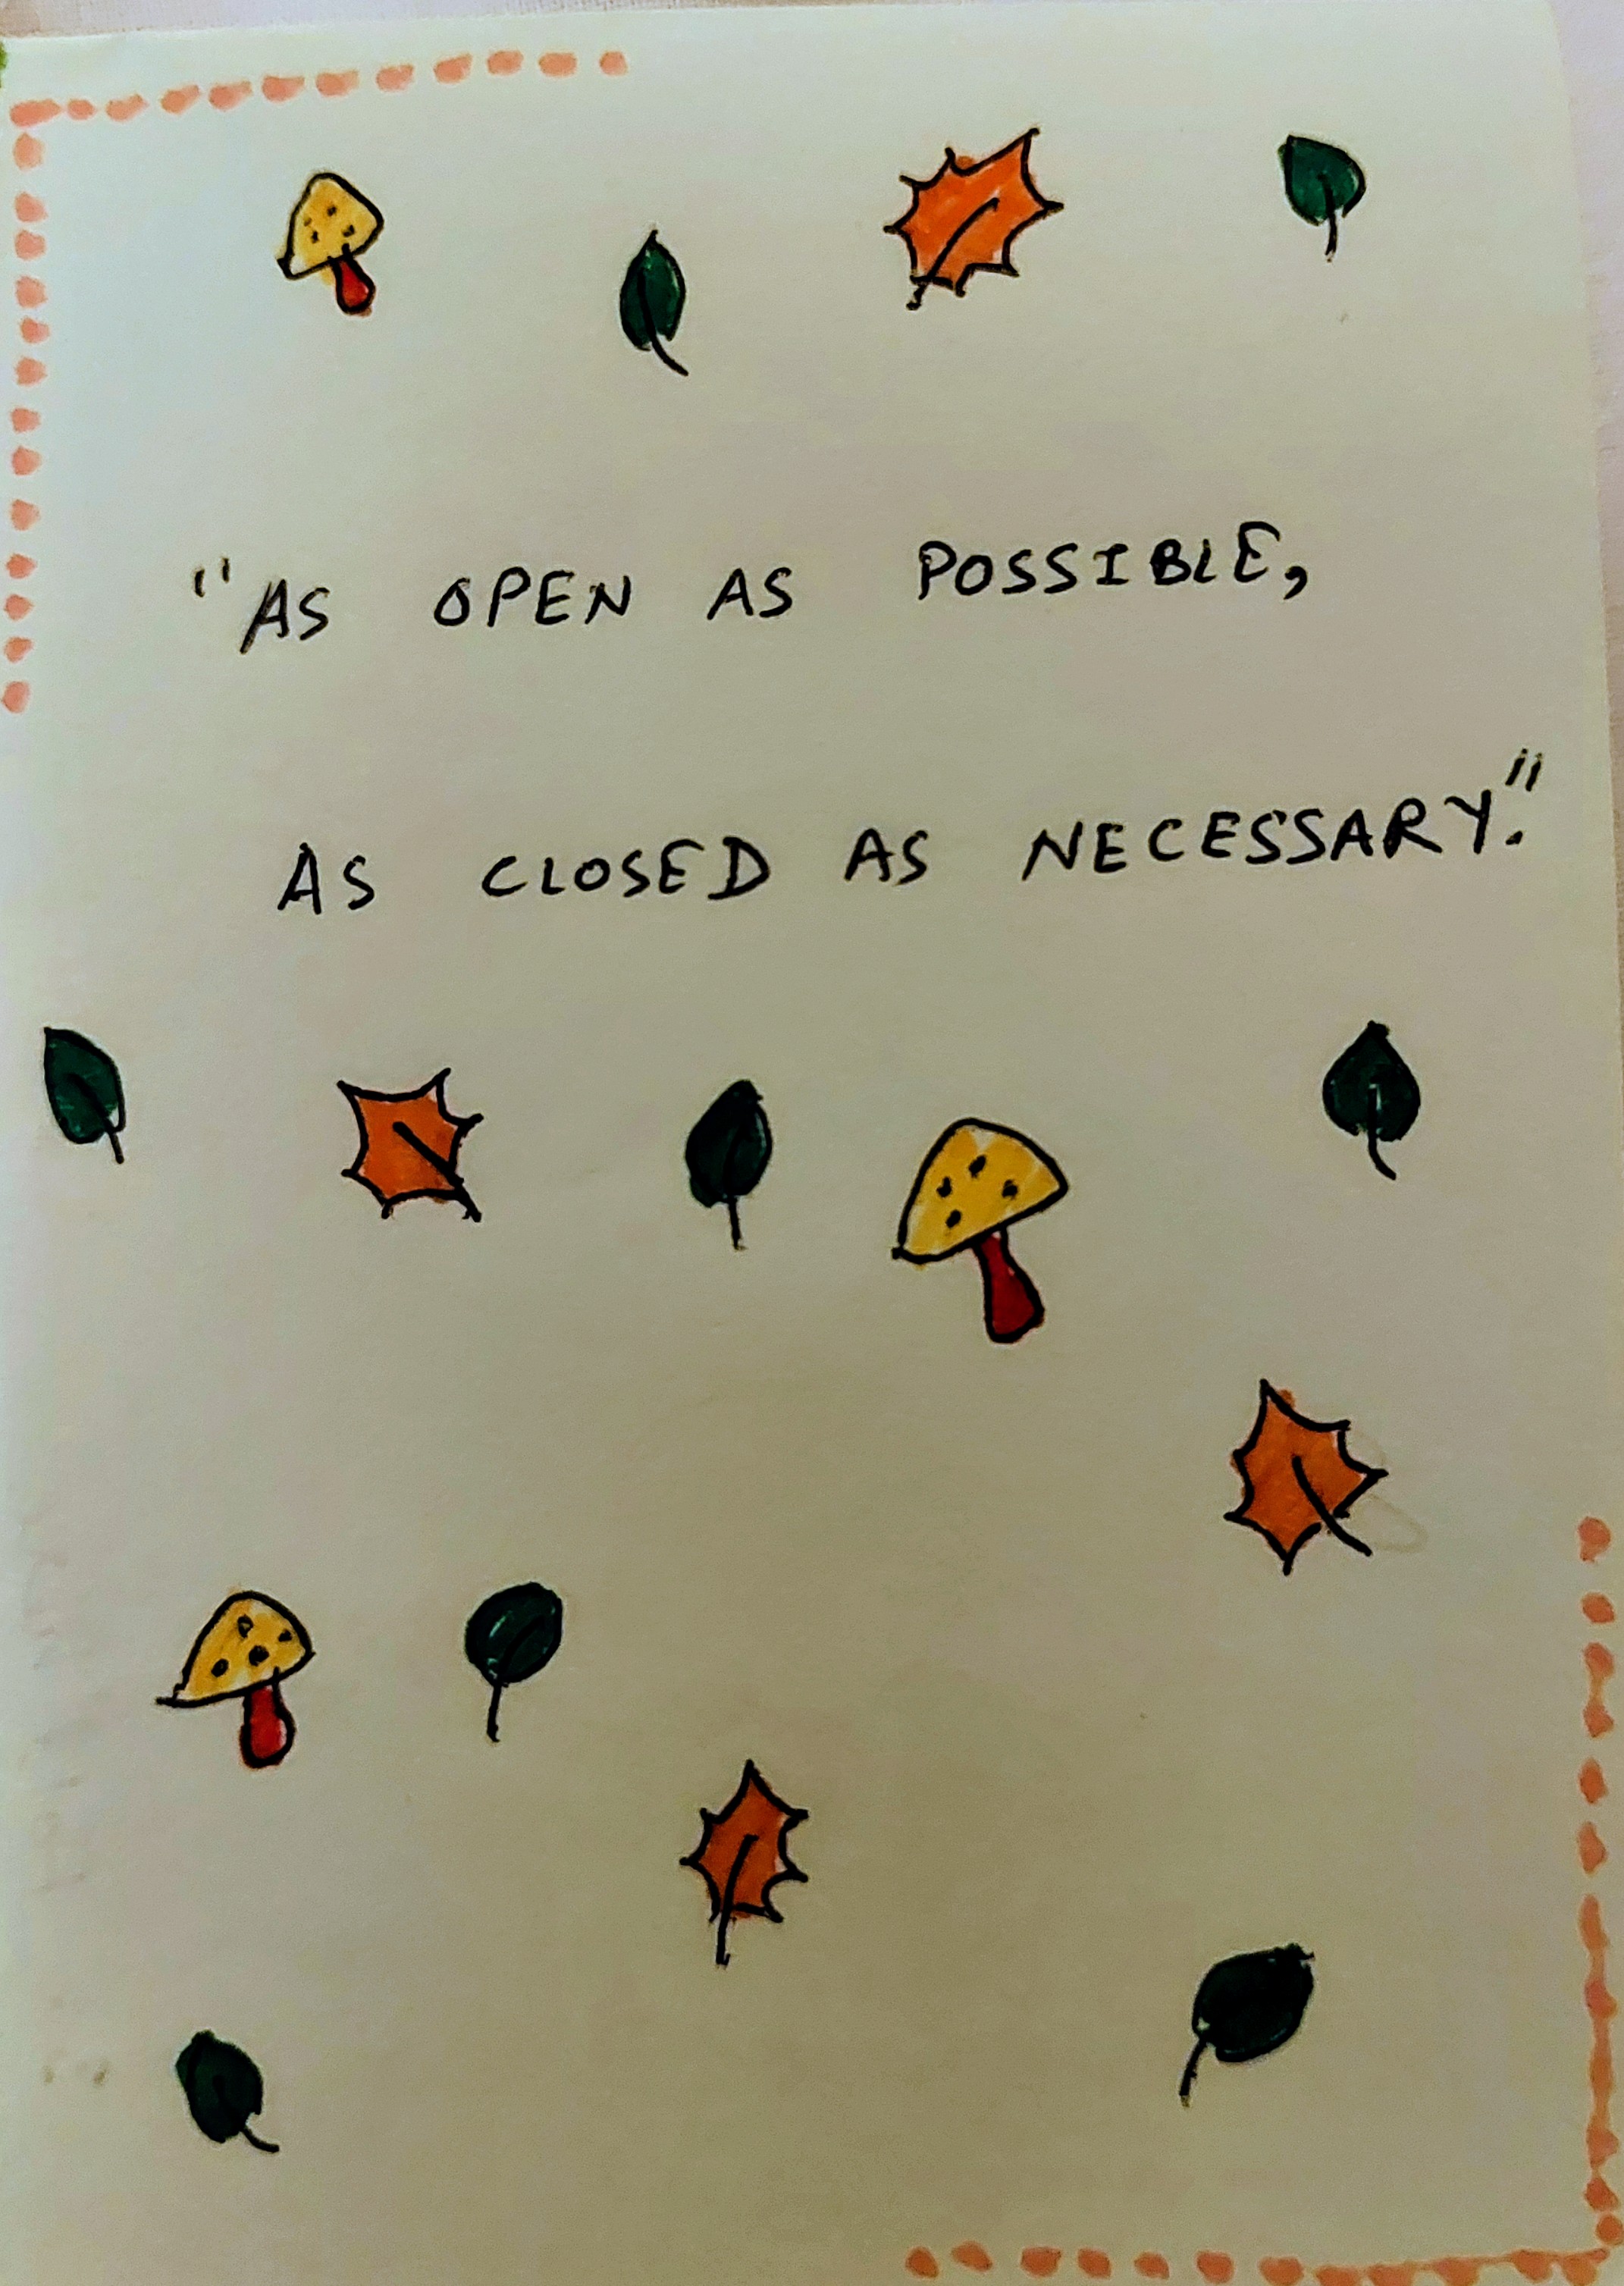 "AS OPEN AS POSSIBLE,
AS CLOSED AS NECESSARY."